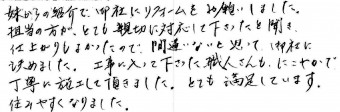 妹からの紹介で、御社にリフォームをお願いしました。
担当の方が、とても親切に対応して下さったと聞き、
仕上がりもよかったので、間違いないと思って御社に
決めました。工事に入って下さった職人さんも、にこやかで
丁寧に施工して頂きました。とても満足しています。
住みやすくなりました。